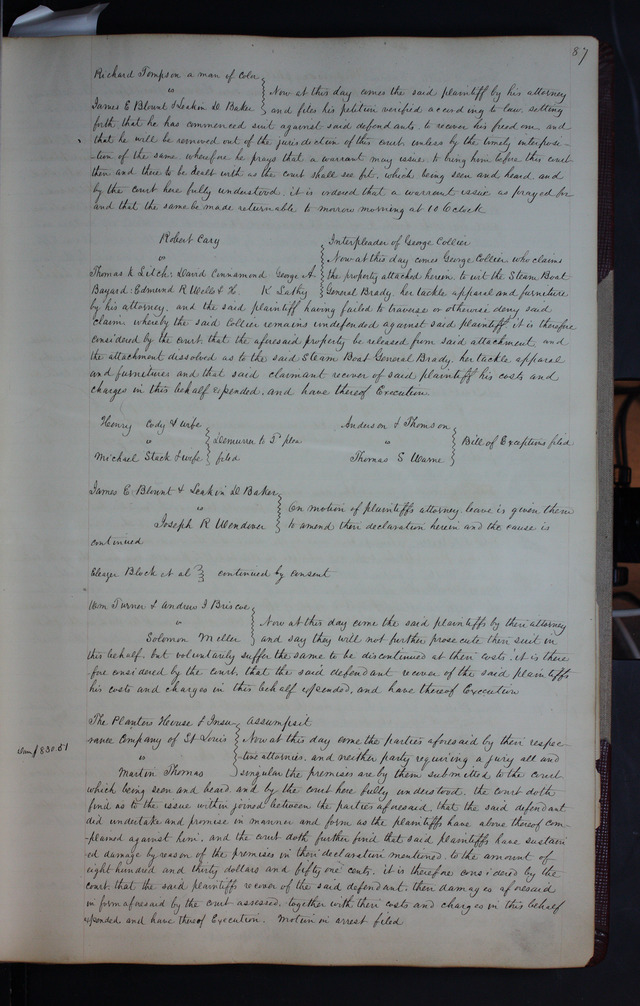 87
Richard Tompson a man of color
vs
James E Blount & Leakin D Baker
Now at this day comes the said plaintiff by his attorney
and files his petition verified according to law, setting
forth that he has commenced suit against said defendants, to recover his freedom and
that he will be removed out of the jurisdiction of this court unless by the timely interposi-
-tion of the same wherefore he prays that a warrant may issue to bring him before this court
then and there to be dealt with as the court shall see fit, which being seen and heard, and
by the court here fully understood, it is ordered that a warrant issue as prayed for
and that the same be made returnable to morrow morning at 10 O'Clock
Robert Cary
vs
Thomas K Litch: David Connamond George A.
Bayard: Edmund R Wells & K Lathy
Interpleader of George Collier
Now at this day comes George Collier who claims
the property attached herein to wit the Steam Boat
General Brady, her tackle apparal and furniture
by his attorney, and the said plaintiff having failed to traverse or otherwise deny said
claim whereby the said Collier remains undefended against said plaintiff, it is therefore
considered by the court, that the aforesaid property be released from said attachment, and
the attachment dissolved as to the said Steam Boat General Brady, her tackle apparal
and furnitures and that said claimant recover of said plaintiff his costs and
charges in this behalf expended, and have thereof Execution
Henry Cody & wife
vs
Michael Stack & wife
Demurrer to 5th plea
filed
Anderson & Thomson
vs
Thomas S Warne
Bill of Exceptions filed
James E. Blount & Leakin D Baker
vs
Joseph R Wendover
On motion of plaintiffs attorney, leave is given them
to amend their declaration herein and the cause is
continued
Eleazer Block et al continued by consent
Wm Turner & Andrew J Briscoe
vs
Solomon Meller
Now at this day come the said plaintiffs by their attorney
and say they will not further prosecute their suit in
this behalf, but voluntarily suffer the same to be discontinued at their costs, it is there
fore considered by the court, that the said defendant recover of the said plaintiffs
his costs and charges in this behalf expended, and have thereof Execution
The Planters House & Insu-
rance Company of St Louis
vs
Martin Thomas
Dam $830 51
Assumpsit
Now at this day come the parties aforesaid by their respec-
-tive attornies, and neither party requiring a jury all and
singular the premises are by them submitted to the court
which being seen and heard, and by the court here fully understood, the court doth
find as to the issue within joined between the parties aforesaid, that the said defendant
did undertake and promise in manner and form as the plaintiffs have above thereof com-
-plained against him, and the court doth further find that said plaintiffs have sustain
ed damage by reason of the premises in their declaration mentioned, to the amount of
eight hundred and thirty dollars and fifty one cents, it is therefore considered by the
court, that the said plaintiffs recover of the said defendant, their damages aforesaid
in form aforesaid by the court assessed, together with their costs and charges in this behalf
expended and have thereof Execution. Motion in arrest filed